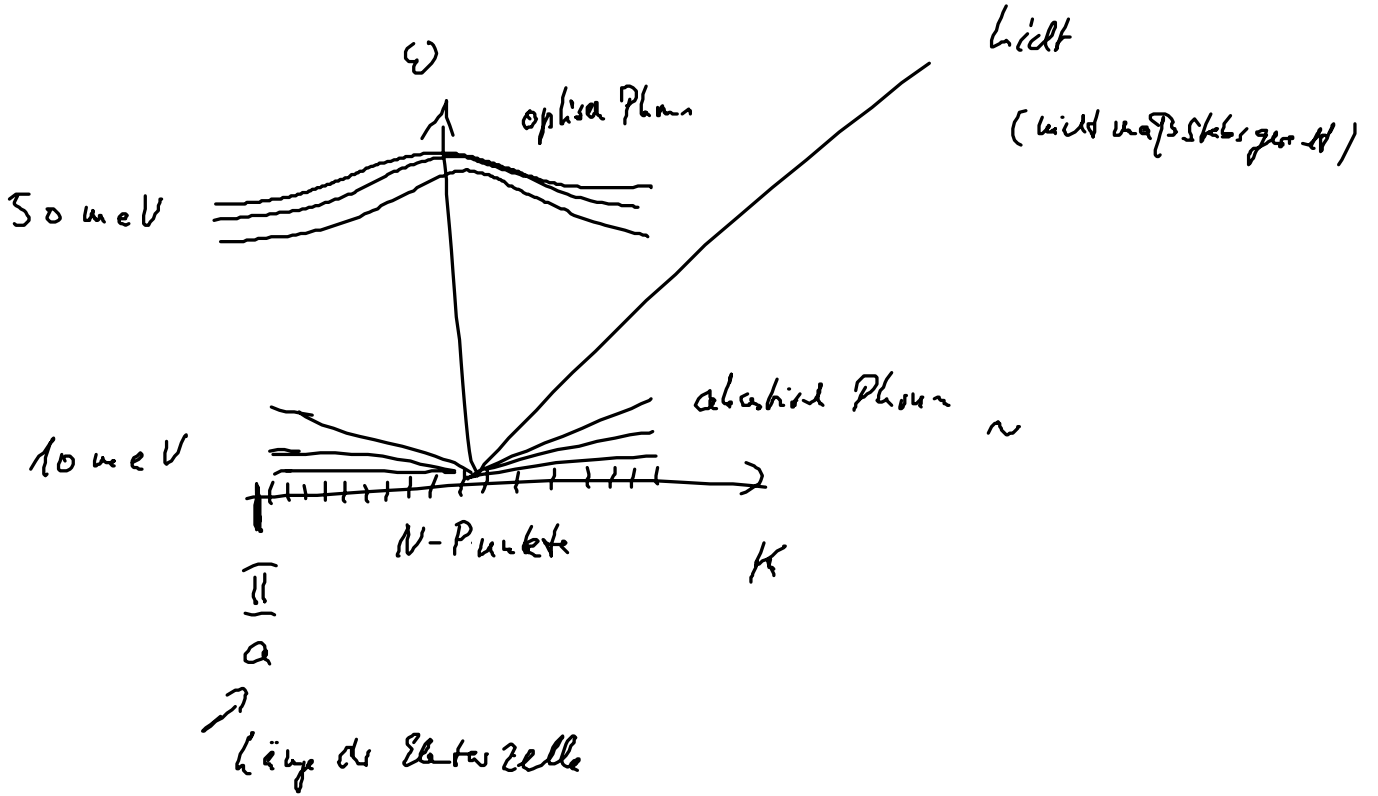 ω
Licht
optische Phonon
(nicht maßstabsgerecht)
50 meV
akustische Phonon
10 meV
N-Punkte
K
π
a
Länge der Elementarzelle